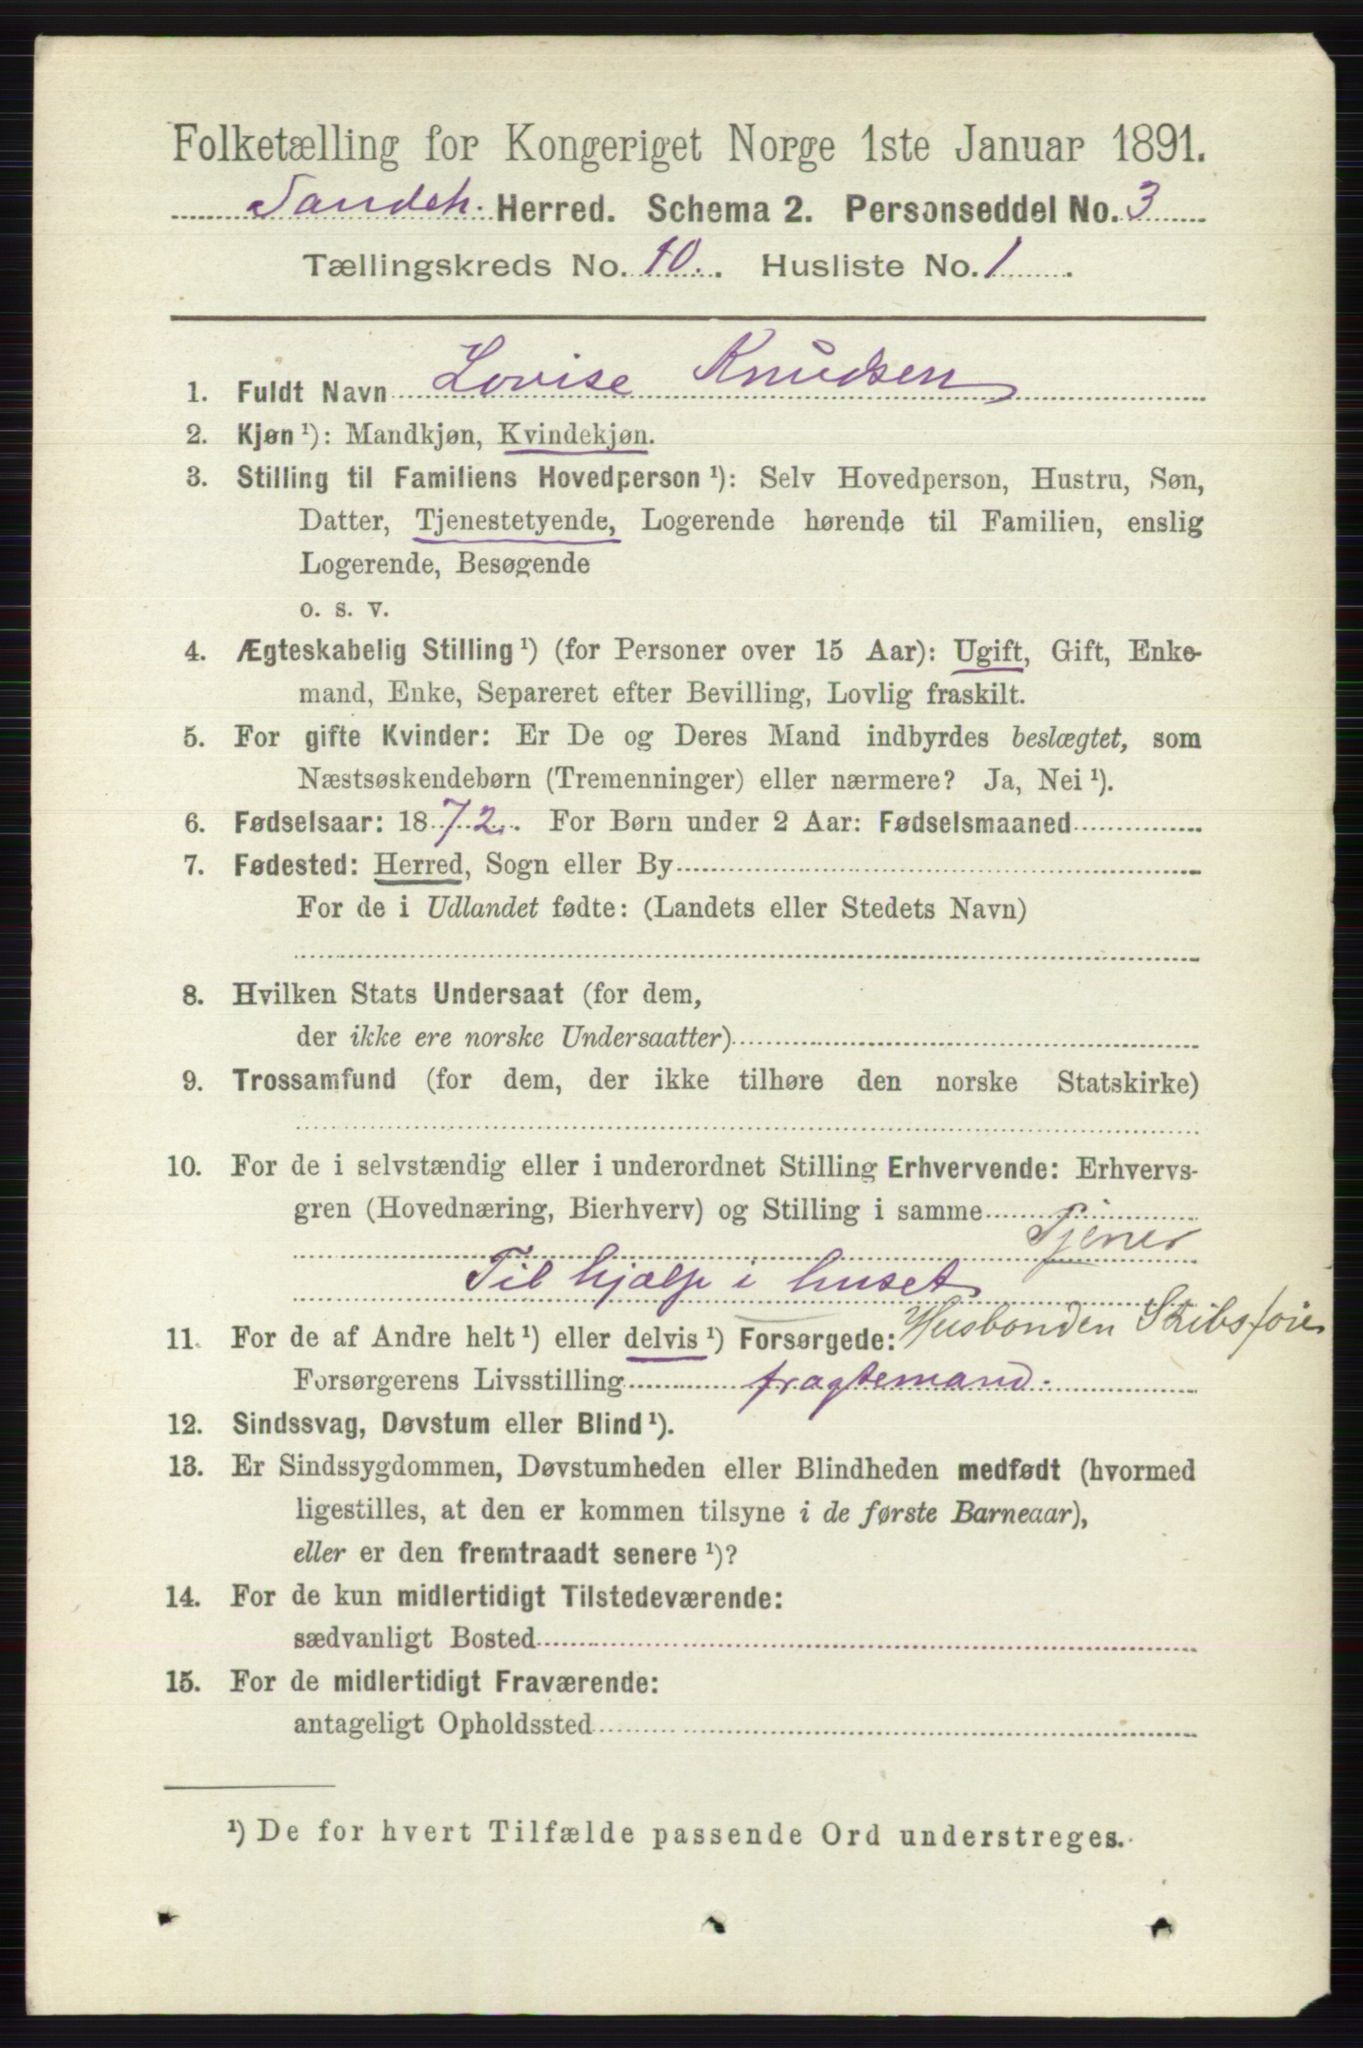 Folketælling for Kongeriget Norge 1ste Januar 1891.
Sandeh. Herred. Schema 2. Personseddel No. 3
Tællingskreds No. 10. Husliste No. 1
1. Fuldt Navn Lovise Knudsen
2. Kjøn ¹): Mandkjøn, Kvindekjøn.
3. Stilling til Familiens Hovedperson ¹): Selv Hovedperson, Hustru, Søn,
Datter, Tjenestetyende, Logerende hørende til Familien, enslig
Logerende, Besøgende
o. s. v.
4. Ægteskabelig Stilling ¹) (for Personer over 15 Aar): Ugift, Gift, Enke-
mand, Enke, Separeret efter Bevilling, Lovlig fraskilt.
5. For gifte Kvinder: Er De og Deres Mand indbyrdes beslægtet, som
Næstsøskendebørn (Tremenninger) eller nærmere? Ja, Nei ¹).
6. Fødselsaar: 1872. For Børn under 2 Aar: Fødselsmaaned
7. Fødested: Herred, Sogn eller By
For de i Udlandet fødte: (Landets eller Stedets Navn)
8. Hvilken Stats Undersaat (for dem,
der ikke ere norske Undersaatter)
9. Trossamfund (for dem, der ikke tilhøre den norske Statskirke)
10. For de i selvstændig eller i underordnet Stilling Erhvervende: Erhvervs-
gren (Hovednæring, Bierhverv) og Stilling i samme Tjener
Til hjælp i huset
11. For de af Andre helt ¹) eller delvis ¹) Forsørgede: Husbonden Skibsfører
Forsørgerens Livsstilling fragtemand.
12. Sindssvag, Døvstum eller Blind ¹).
13. Er Sindssygdommen, Døvstumheden eller Blindheden medfødt (hvormed
ligestilles, at den er kommen tilsyne i de første Barneaar),
eller er den fremtraadt senere ¹)?
14. For de kun midlertidigt Tilstedeværende:
sædvanligt Bosted
15. For de midlertidigt Fraværende:
antageligt Opholdssted
¹) De for hvert Tilfælde passende Ord understreges.